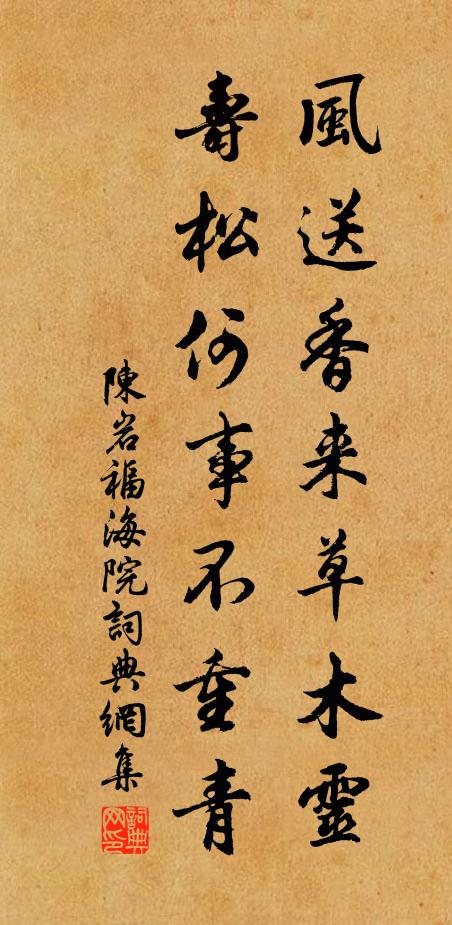 風送香来草木靈
壽松何事不重青
陳岩福海院詞典網集
詞典网印